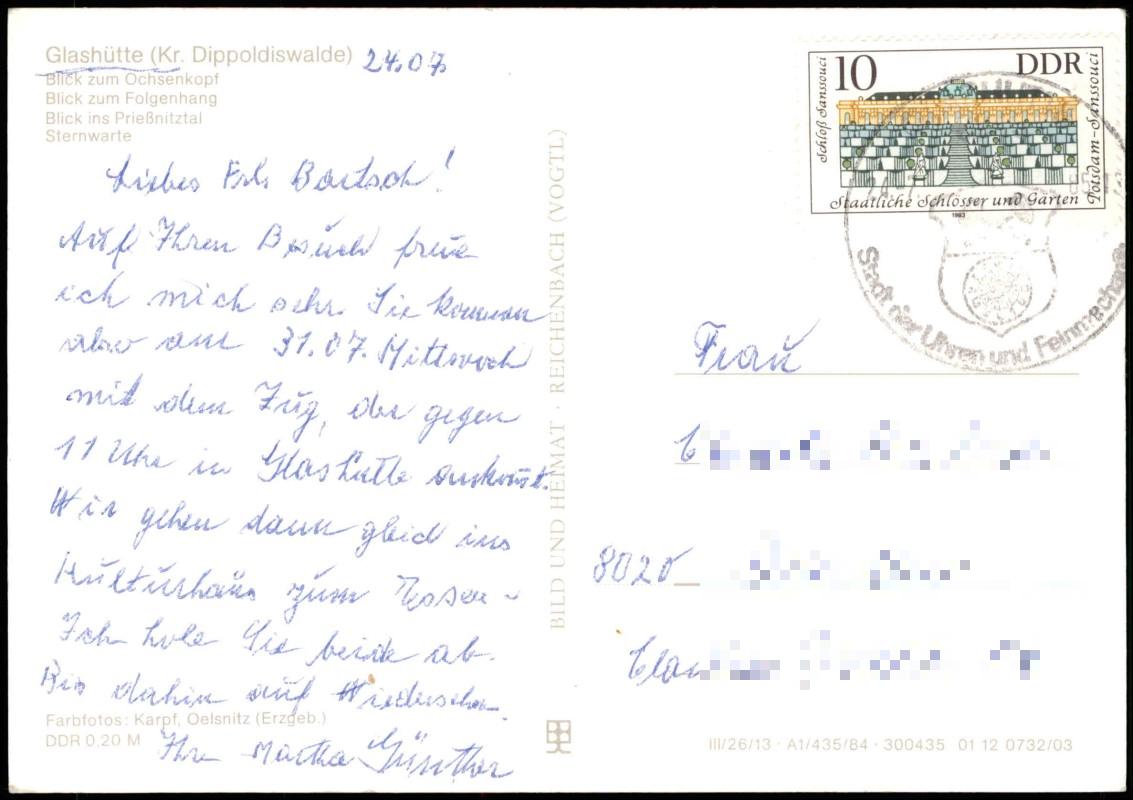 Glashütte (Kr. Dippoldiswalde) 24.07
Blick zum Ochsenkopf
Blick zum Folgenhang
Blick ins Prießnitztal
Sternwarte
Liebes Frls Bartsch!
Auf Ihren Besuch freue
ich mich sehr. Sie kommen
also am 31.07. Mittwoch
mit dem Zug, der gegen
11 Uhr in Glashütte ankomt.
Wir gehen dann gleich ins
Kulturhaus zum Essen -
Ich hole Sie beide ab.
Bis dahin auf Wiedersehn.
Ihre Martha Günther
Farbfotos: Karpf, Oelsnitz (Erzgeb.)
DDR 0,20 M
BILD UND HEIMAT · REICHENBACH (VOGTL)
10 DDR
Schloß Sanssouci
Potsdam-Sanssouci
Staatliche Schlösser und Gärten
1983
Stadt der Uhren und Feinmechanik
Frau
8020
III/26/13 · A1/435/84 · 300435 01 12 0732/03